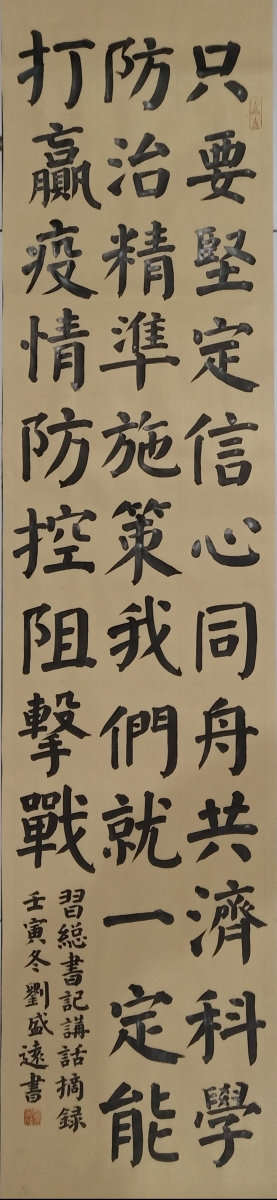 只要堅定信心同舟共濟科學
防治精準施策我們就一定能
打贏疫情防控阻擊戰
習總書記講話摘錄
壬寅冬劉盛遠書